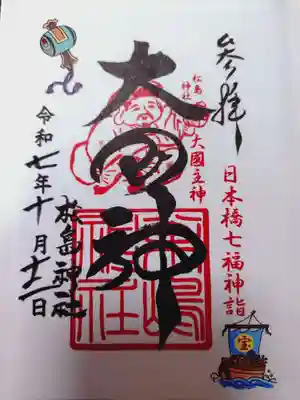 参拝
日本橋七福神詣
宝
松島
神社
大國主神
大国神
松嶋神社
松島神社
令和七年十月十二日